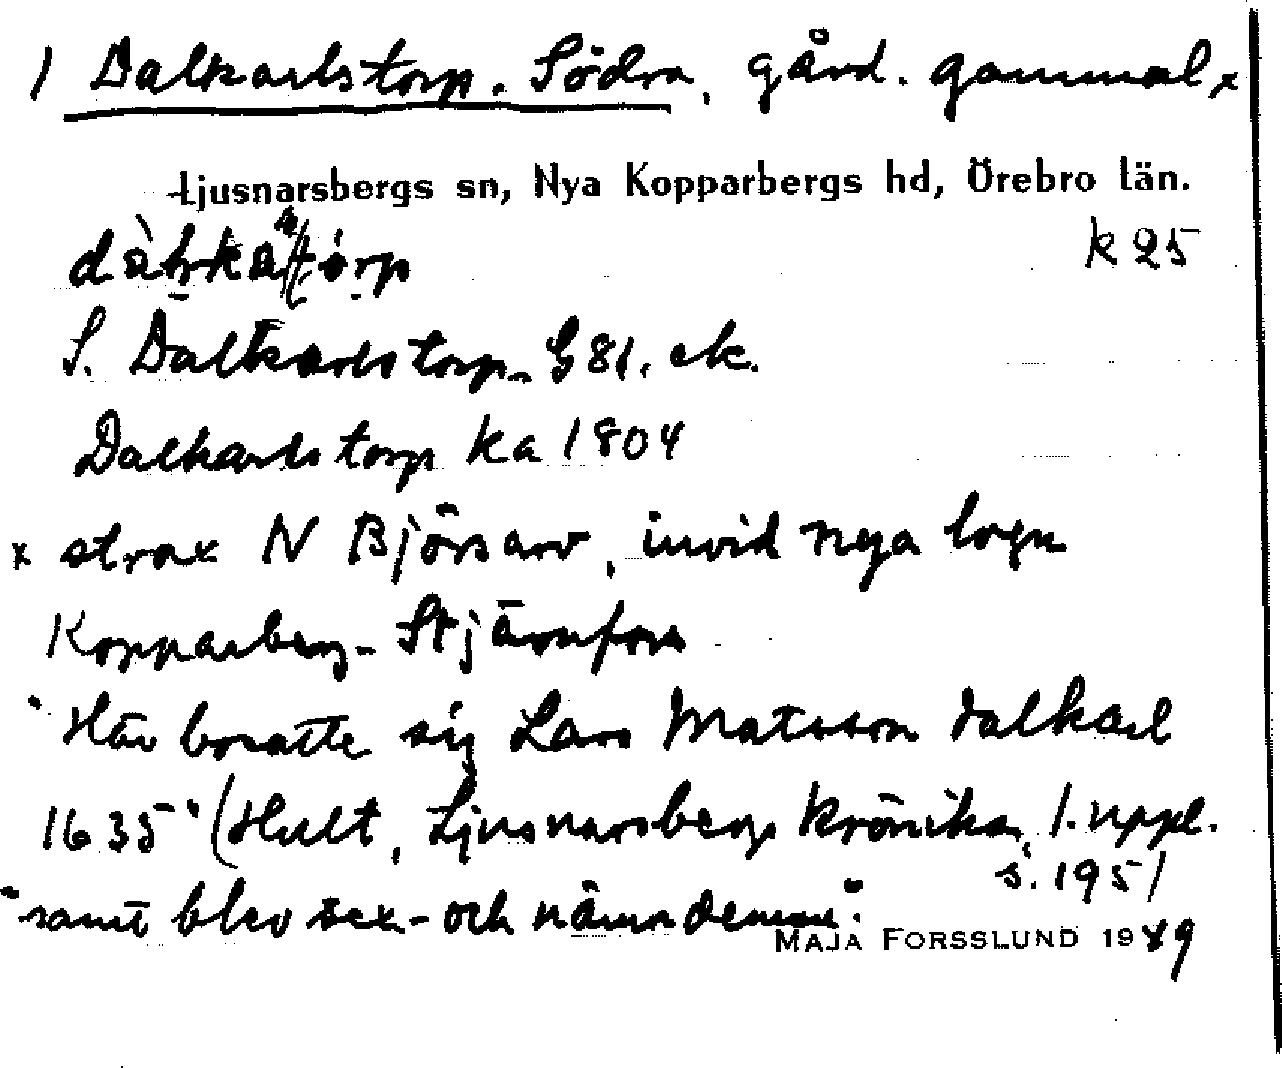 1 Dalkarlstorp. Södra, gård. gammal x
Ljusnarsbergs sn, Nya Kopparbergs hd, Örebro län.
k 25
S. Dalkarlstorp G 81. ek.
Dalkarlstorp ka 1804
x strax N Björsarv, invid nya lvgn
Kopparberg - Stjärnfors
"Här bosatte sig Lars Matsson dalkarl
1635" (Hult, Ljusnarsbergs krönika, 1. uppl.
s. 195)
"samt blev sex- och nämndeman".
MAJA FORSSLUND 1949